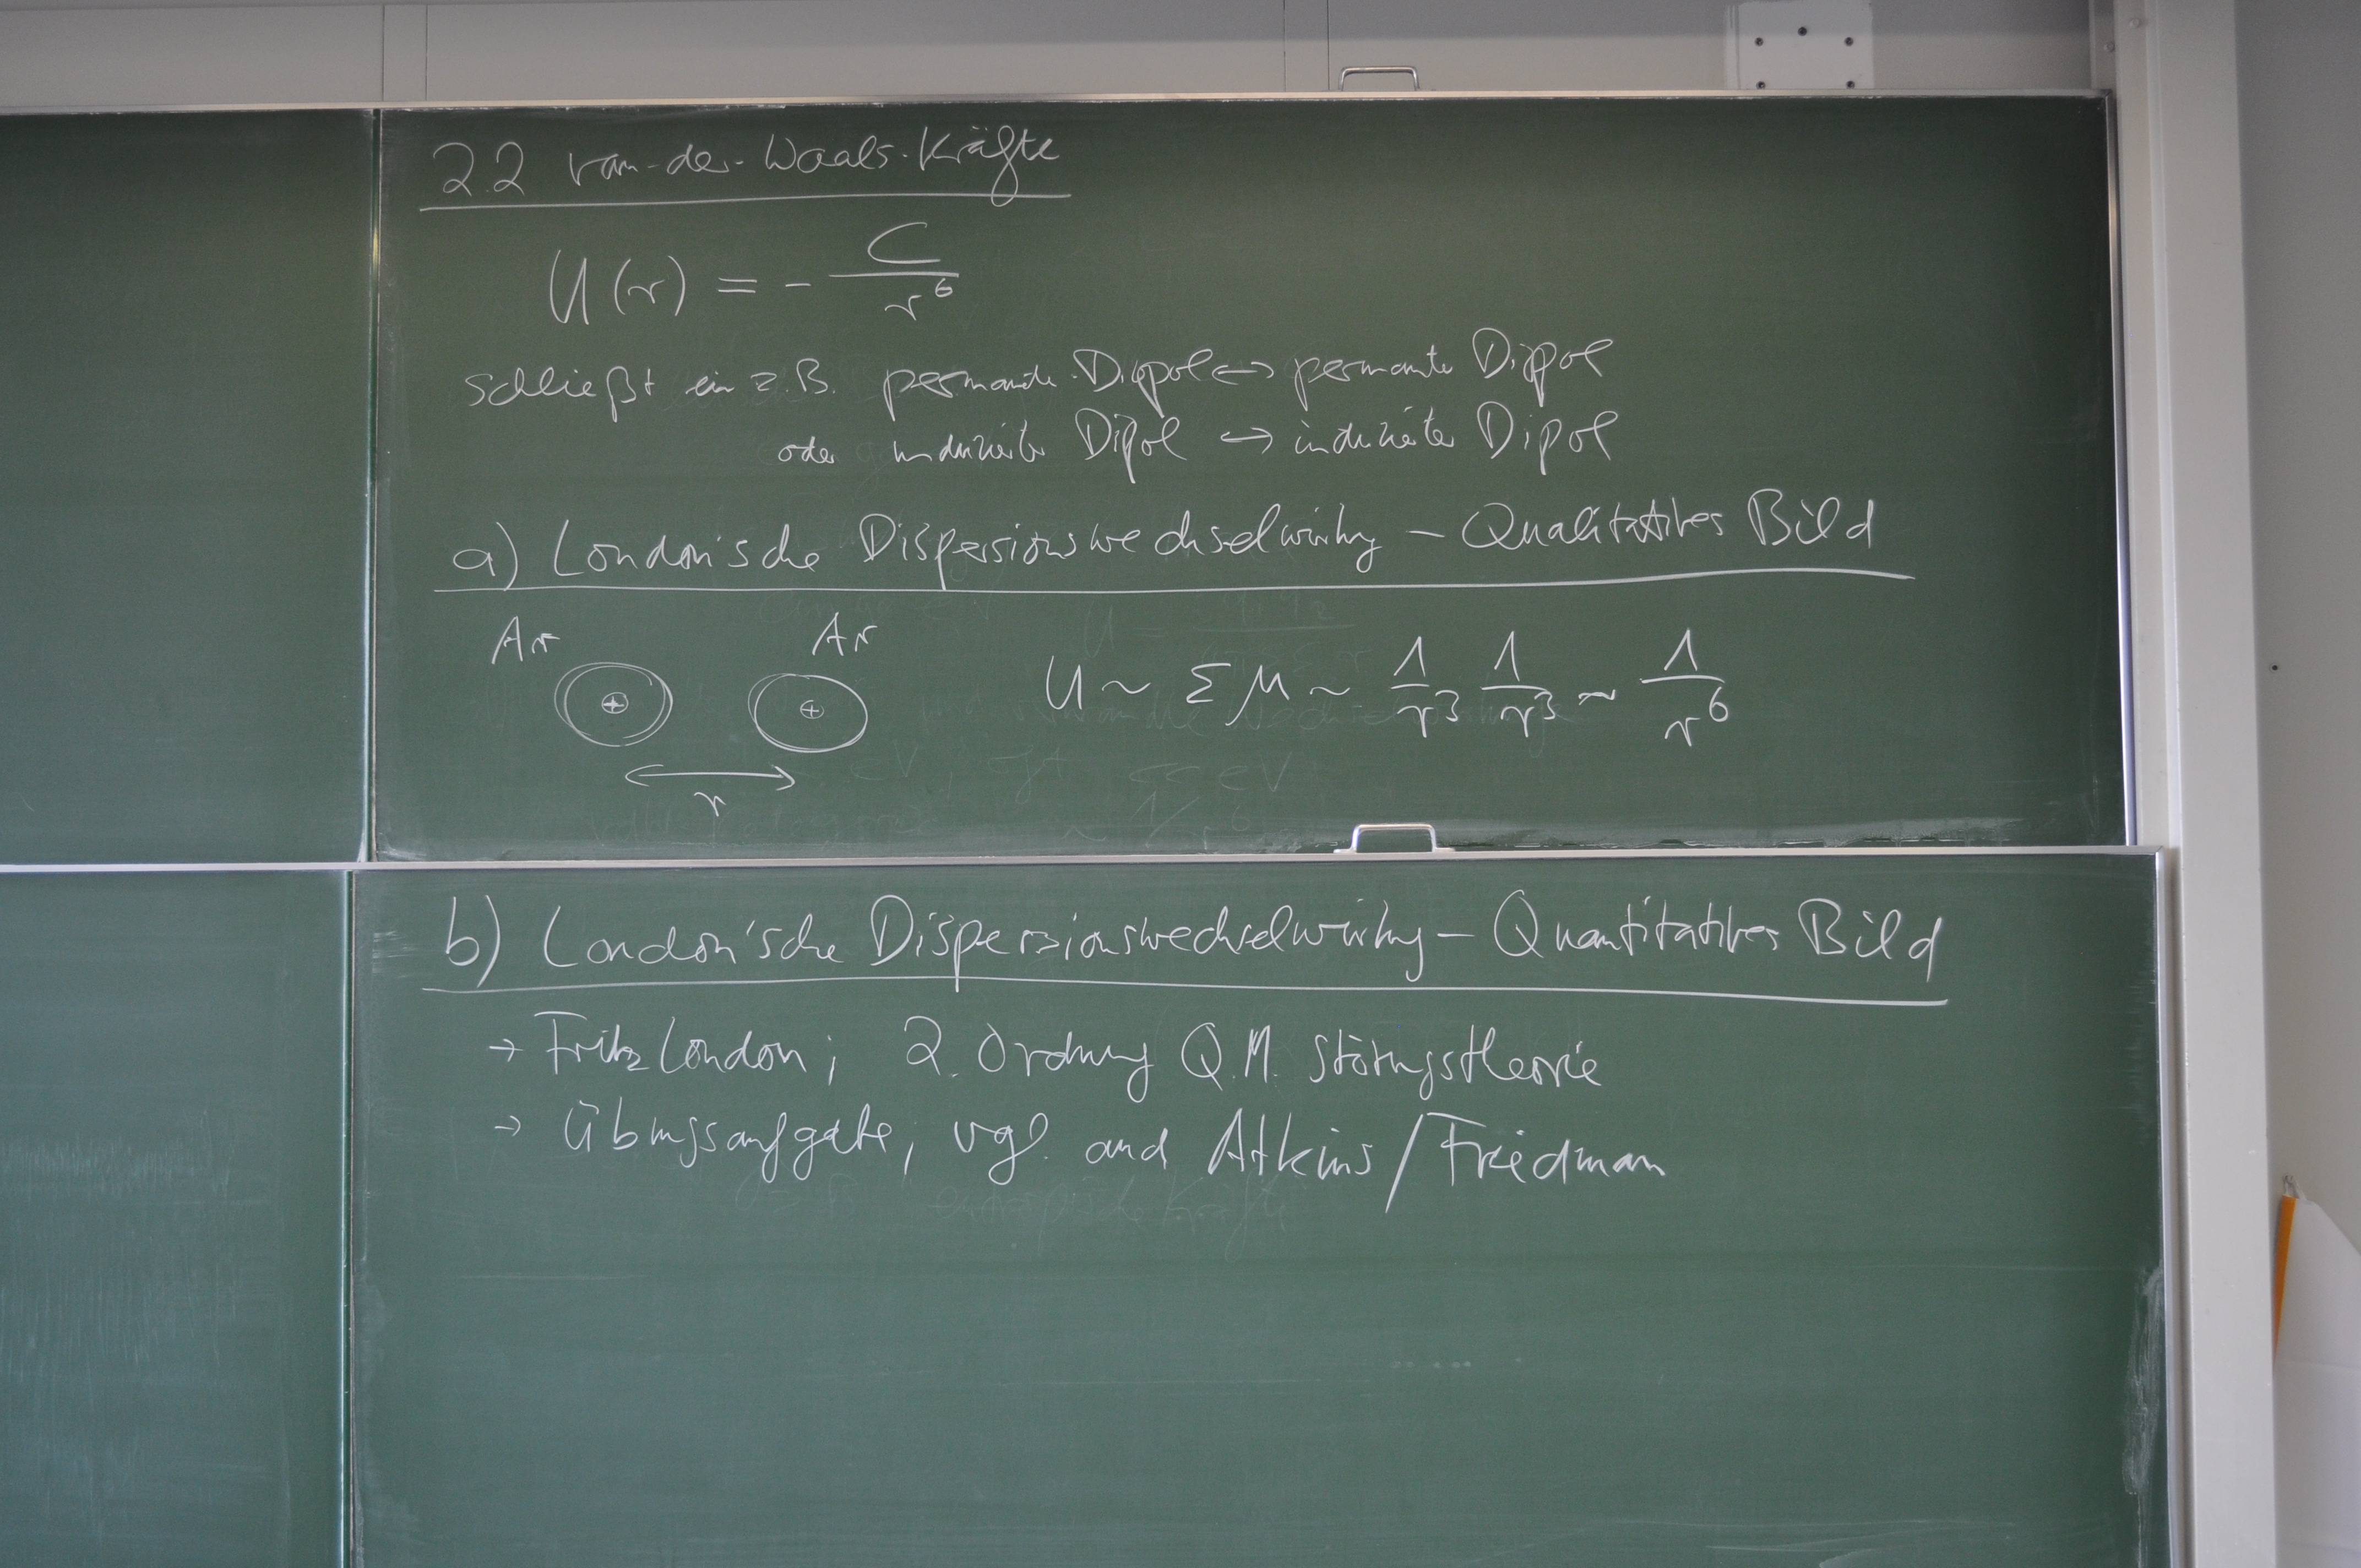 2.2 van-der-Waals-Kräfte
U(r) = - C/r⁶
schließt ein z.B. permanente Dipol ↔ permanente Dipol
oder induzierter Dipol ↔ induzierter Dipol
a) London'sche Dispersionswechselwirkung – Qualitatives Bild
Ar Ar
U ~ Σμ ~ 1/r³ 1/r³ ~ 1/r⁶
+ +
r
b) London'sche Dispersionswechselwirkung – Quantitatives Bild
→ Fritz London; 2. Ordnung Q.M. Störungstheorie
→ Übungsaufgabe, vgl. auch Atkins/Friedman